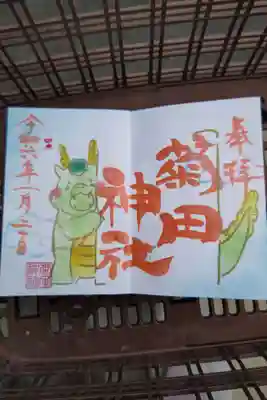 奉拝
菊田
神社
令和六年一月二日